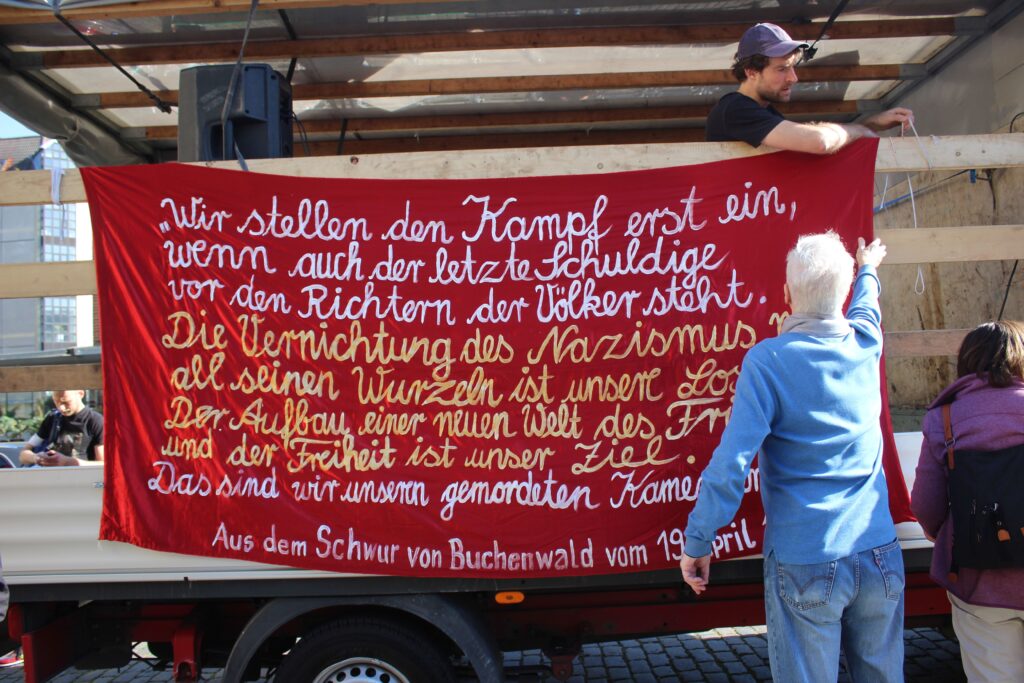 „Wir stellen den Kampf erst ein,
wenn auch der letzte Schuldige
vor den Richtern der Völker steht.
Die Vernichtung des Nazismus
all seinen Wurzeln ist unsere
Der Aufbau einer neuen Welt des
und der Freiheit ist unser Ziel.
Das sind wir unseren gemordeten
Aus dem Schwur von Buchenwald vom 19. April